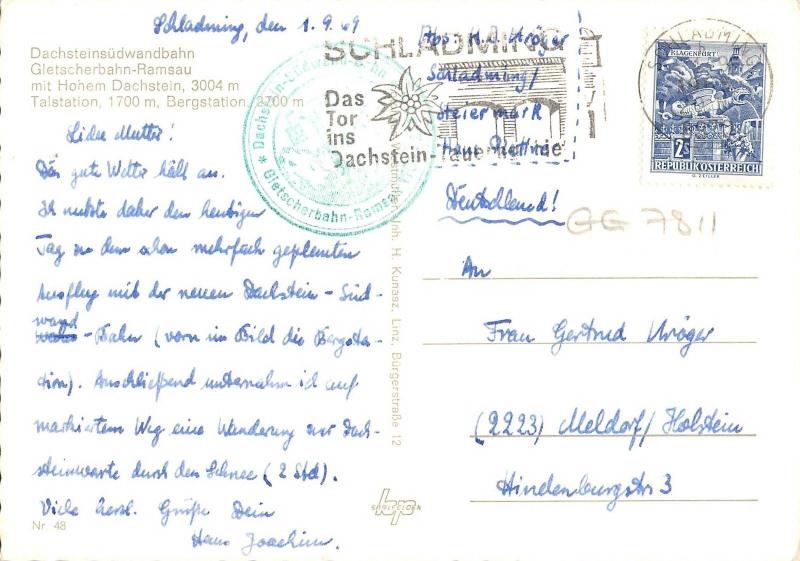 Schladming, den 1.9.69
Dachsteinsüdwandbahn
Gletscherbahn-Ramsau
mit Hohem Dachstein, 3004 m
Talstation, 1700 m, Bergstation, 2700 m
Liebe Mutter!
Das gute Wetter hält an.
Ich nutzte daher den heutigen
Tag zu dem schon mehrfach geplanten
Ausflug mit der neuen Dachstein-Süd-
wand
-Bahn (vorn im Bild die Bergsta-
tion). Anschließend unternahm ich auf
markiertem Weg eine Wanderung zur Dach-
steinwarte durch den Schnee (2 Std).
Viele herzl. Grüße Dein
Hans Joachim.
Nr 48
* Dachstein-Südwand-Bahn *
Gletscherbahn-Ramsau
SCHLADMING
Das
Tor
ins
Dachstein-Tauerngebiet
Abs. H.J. Kröger
Schladming/
Steiermark
Haus
Deutschland!
GG 7811
SCHLADMING
KLAGENFURT
2S
REPUBLIK ÖSTERREICH
G. ZEILER
Inh. H. Kunasz, Linz, Bürgerstraße 12
An
Frau Gertrud Kröger
(2223) Meldorf/Holstein
Hindenburgstr. 3
SAALFELDEN